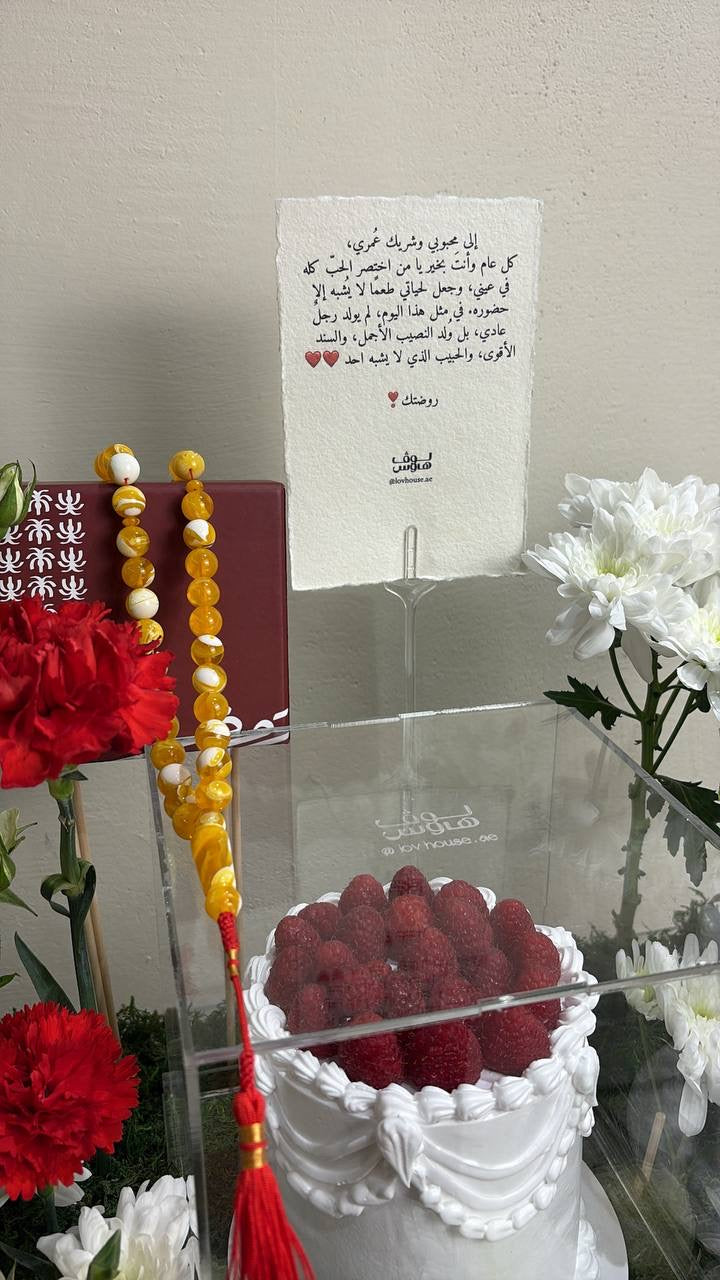 إلى محبوبي وشريك عُمري،
كل عام وأنتَ بخير يا من اختصر الحبّ كله
في عيني، وجعل لحياتي طعمًا لا يُشبه إلا
حضوره. في مثل هذا اليوم، لم يولد رجلٌ
عادي، بل وُلد النصيب الأجمل، والسند
الأقوى، والحبيب الذي لا يشبه احد ❤️❤️
روضتك❣️
لوڤ
هاوس
@lovhouse.ae
لوڤ
هاوس
@lovhouse.ae